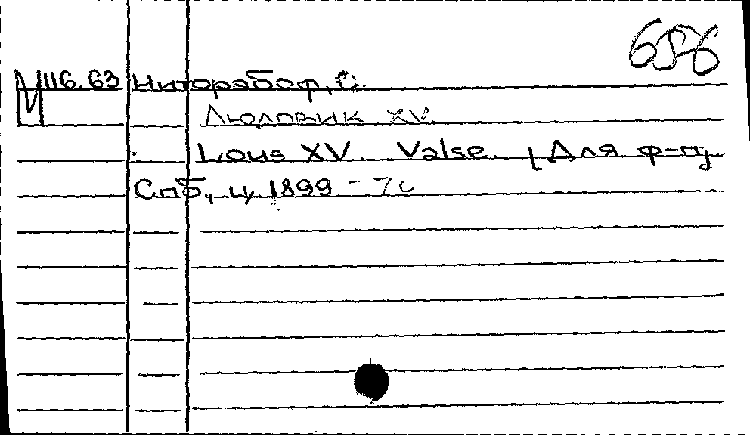 656
М 116.63 Ниторабоф, С.
Людовик XV.
Lous XV. Valse. [Для ф-п]
Спб, ц. 1899 - 7с